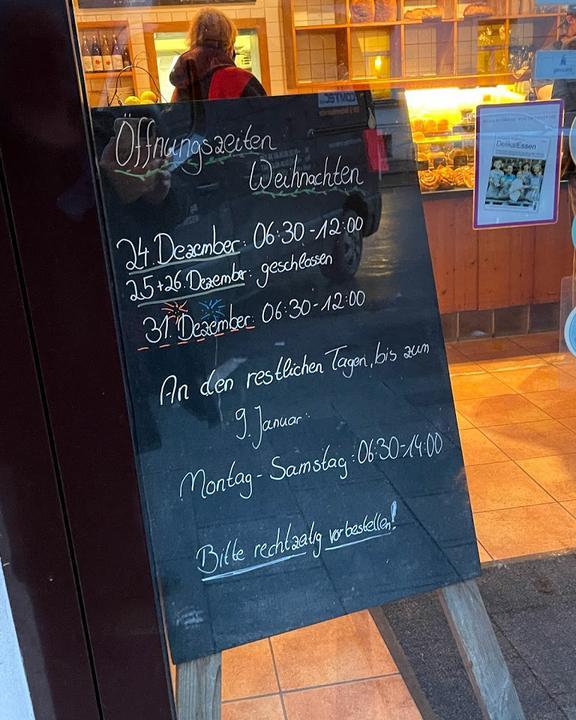 Öffnungszeiten
Weihnachten
24. Dezember: 06:30-12:00
25+26. Dezember: geschlossen
31. Dezember: 06:30-12:00
An den restlichen Tagen, bis zum
9. Januar:
Montag-Samstag: 06:30-14:00
Bitte rechtzeitig vorbestellen!
DelikatEssen